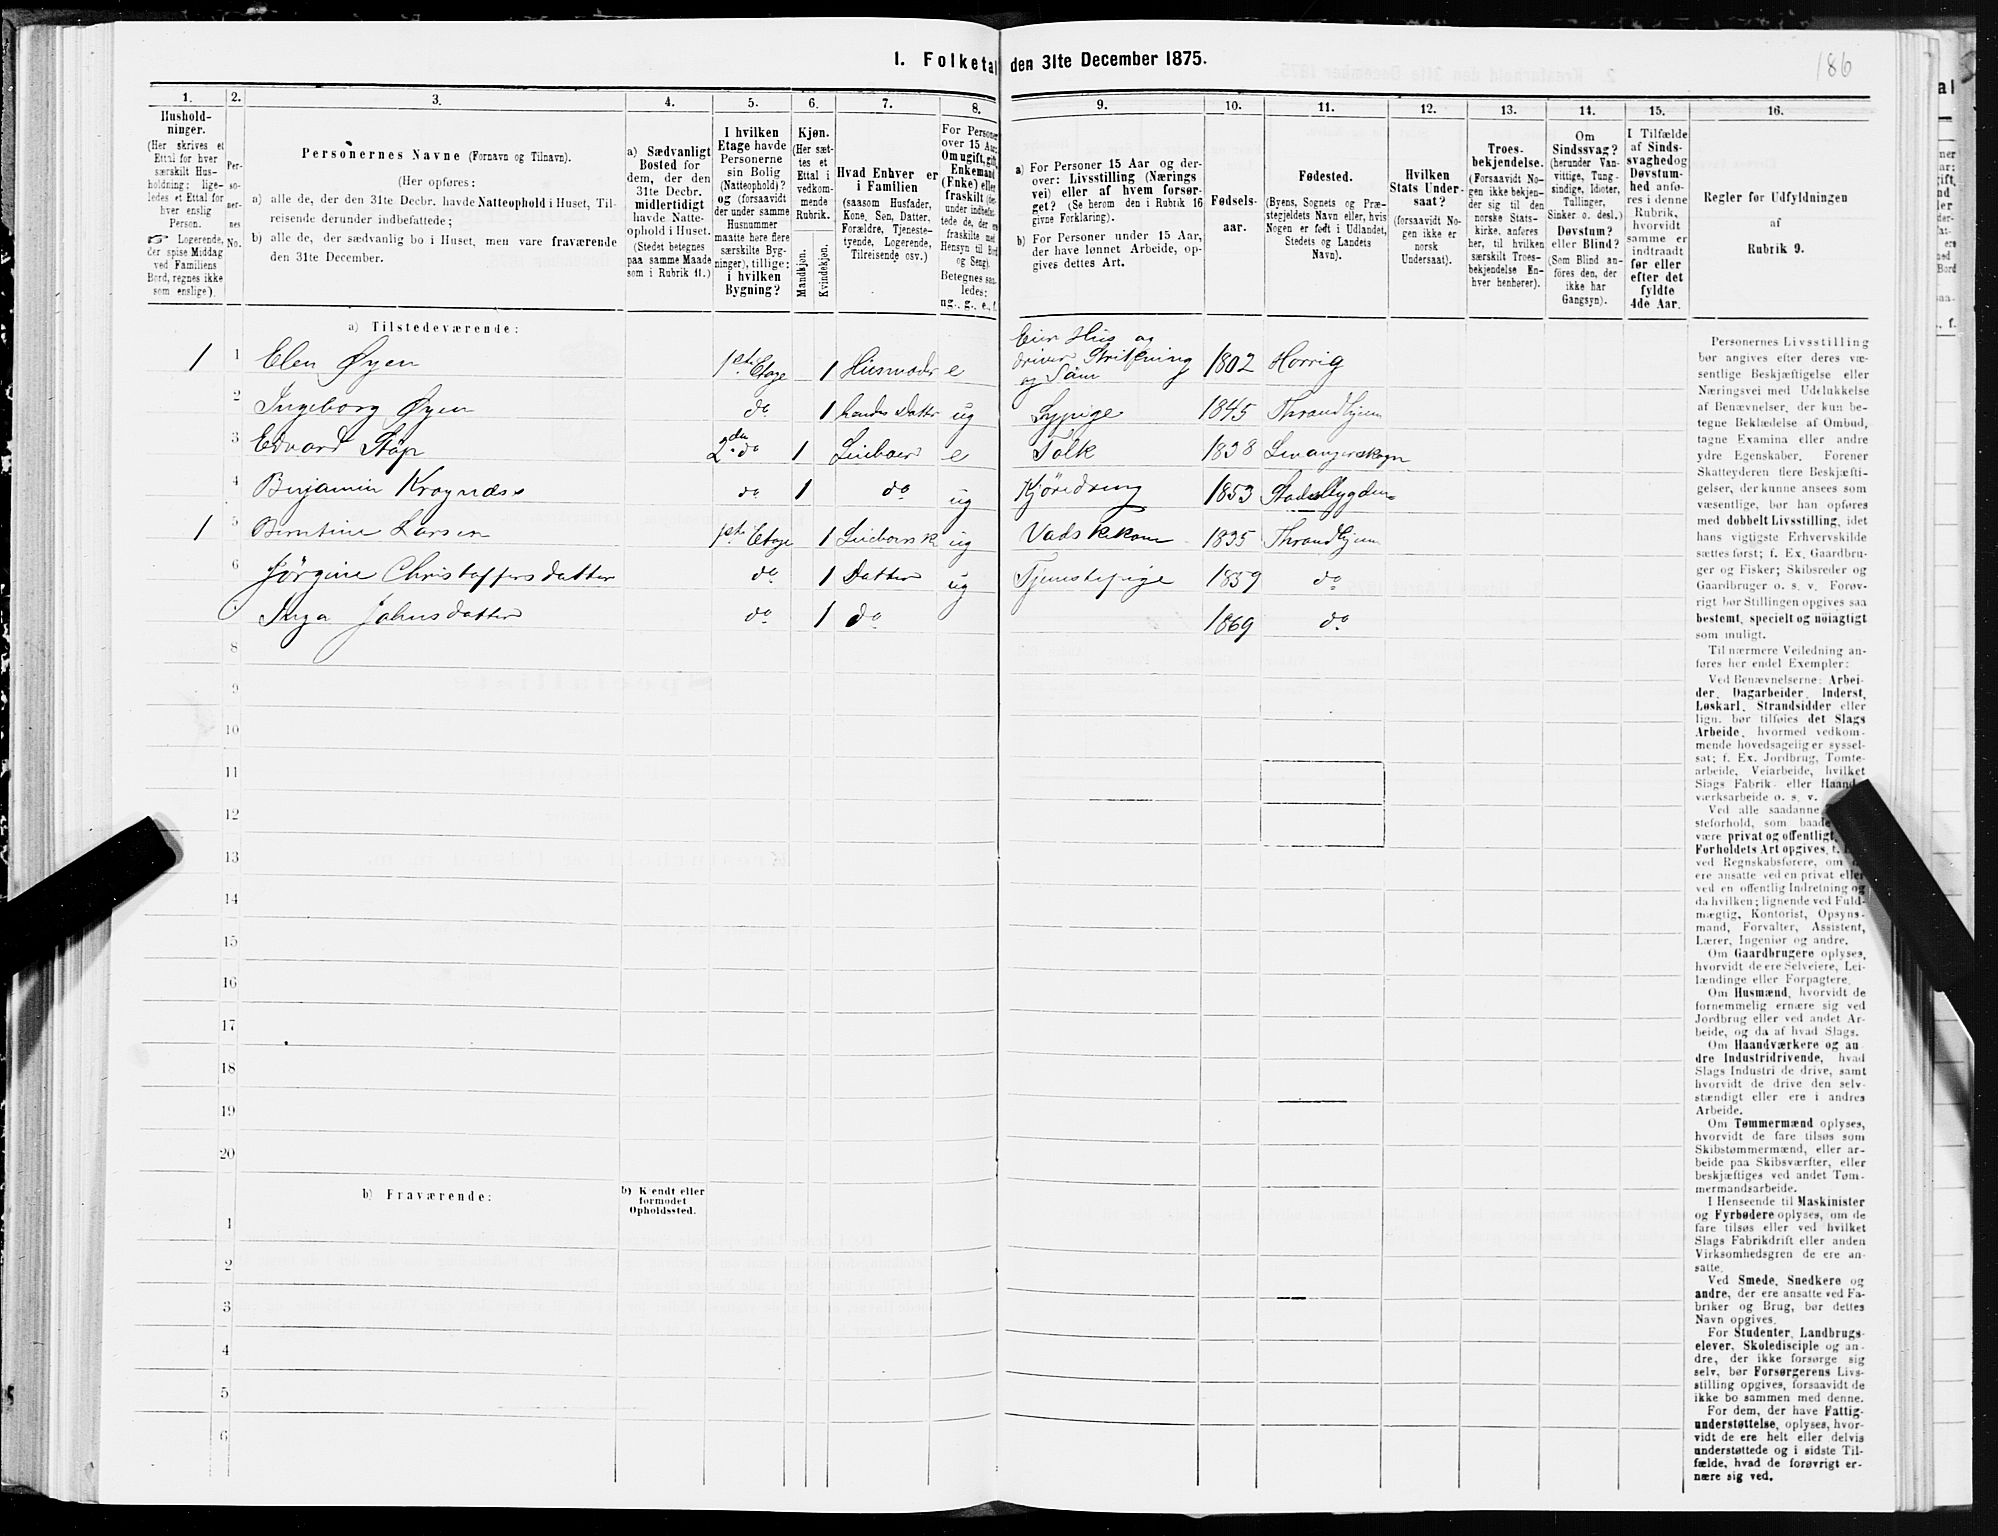 186
I. Folketal den 31te December 1875.
1. 2. 3. 4. 5. 6. 7. 8. 9. 10. 11. 12. 13. 14. 15. 16.
Hushold-
ninger.
(Her skrives et
Ettal for hver
særskilt Hus-
holdning; lige-
ledes et Ettal for
hver enslig
Person.
☞ Logerende,
der spise Middag
ved Familiens
Bord, regnes ikke
som enslige).
Per-
so-
ner-
nes
No.
Personernes Navne (Fornavn og Tilnavn).
(Her opføres:
a) alle de, der den 31te Decbr. havde Natteophold i Huset, Til-
reisende derunder indbefattede;
b) alle de, der sædvanlig bo i Huset, men vare fraværende
den 31te December.
a) Sædvanligt
Bosted for
dem, der den
31te Decbr.
midlertidigt
havde Natte-
ophold i Huset.
(Stedet betegnes
paa samme Maade
som i Rubrik 11.)
I hvilken
Etage havde
Personerne
sin Bolig
(Natteophold)?
og (forsaavidt
der under samme
Husnummer
maatte høre flere
særskilte Byg-
ninger), tillige:
i hvilken
Bygning?
Kjøn.
(Her sæt-
tes et
Ettal i
vedkom-
mende
Rubrik.
Mandkjøn.
Kvindekjøn.
Hvad Enhver er
i Familien
(saasom Husfader,
Kone, Søn, Datter,
Forældre, Tjeneste-
tyende, Logerende,
Tilreisende osv.)
For Personer
over 15 Aar:
Om ugift, gift,
Enkemand
(Enke) eller
fraskilt
Hensyn til Bord
og Seng).
Betegnes saa-
ledes:
ug., g., e., f.
a) For Personer 15 Aar og der-
over: Livsstilling (Nærings
vei) eller af hvem forsør-
get? (Se herom den i Rubrik 16
givne Forklaring).
b) For Personer under 15 Aar,
der have lønnet Arbeide, op-
gives dettes Art.
Fødsels-
aar.
Fødested.
(Byens, Sognets og Præ-
stegjeldets Navn eller, hvis
Nogen er født i Udlandet,
Stedets og Landets
Navn).
Hvilken
Stats Under-
saat?
(forsaavidt No-
gen ikke er
norsk
Undersaat).
Troes-
bekjendelse.
(Forsaavidt No-
gen ikke bekjen-
der sig til den
norske Stats-
kirke, anføres
her, til hvilken
særskilt Troes-
bekjendelse En-
hver henhører).
Om
Sindssvag?
(herunder Van-
vittige, Tung-
sindige, Idioter,
Tullinger,
Sinker o. desl.)
Døvstum?
eller Blind?
(Som Blind an-
føres den, der
ikke har
Gangsyn).
I Tilfælde
af Sinds-
svaghed og
Døvstum-
hed anfø-
res i denne
Rubrik,
hvorvidt
samme er
indtraadt
før eller
efter det
fyldte
4de Aar.
Regler for Udfyldningen
af
Rubrik 9.
a) Tilstedeværende:
1 1 Elen Øyen 1ste Etage 1 Husmoder e Eier Hus og driver Strikning og Søm 1802 Horrig
2 Ingeborg Øyen do 1 hendes Datter ug Sypige 1845 Throndhjem
3 Edvard Støp 2den do 1 Leieboer e Tolk 1838 Levangerskogn
4 Benjamin Krognæss do 1 do ug Kjøredreng 1853 Stadsbygden
1 5 Berntine Larsen 1ste Etage 1 Leieboerske ug Vadskekone 1835 Throndhjem
6 Jørgine Christoffersdatter do 1 Datter ug Tjenestepige 1859 do
Inga Johnsdatter do 1 do 1869 do
8
9
10
11
12
13
14
15
16
17
18
19
20
b) Fraværende:
b) Kjendt eller
formodet
Opholdssted.
1
2
3
4
5
6
Personernes Livsstilling
bør angives efter deres væ-
sentlige Beskjæftigelse eller
Næringsvei med Udelukkelse
af Benævnelser, der kun be-
tegne Beklædelse af Ombud,
tagne Examina eller andre
ydre Egenskaber. Forener
Skatteyderen flere Beskjæfti-
gelser, der kunne ansees som
væsentlige, bør han opføres
med dobbelt Livsstilling, idet
hans vigtigste Erhvervskilde
sættes først; f. Ex. Gaardbru-
ger og Fisker; Skibsreder og
Gaardbruger o. s. v. Forøv-
rigt bør Stillingen opgives saa
bestemt, specielt og nöiagtigt
som muligt.
Til nærmere Veiledning an-
føres her endel Exempler:
Ved Benævnelserne: Arbei-
der, Dagarbeider, Inderst,
Løskarl, Strandsidder eller
lign. bør tilføies det Slags
Arbeide, hvormed vedkom-
mende hovedsagelig er syssel-
sat; f. Ex. Jordbrug, Tomte-
arbeide, Veiarbeide, hvilket
Slags Fabrik- eller Haand-
værksarbeide o. s. v.
Ved alle saadanne
steforhold, som baade
være privat og offentligt,
Forholdets Art opgives,
ved Regnskabsførere, om
ere ansatte ved en privat eller
ved en offentlig Indretning og
da hvilken; lignende ved Fuld-
mægtig, Kontorist, Opsyns-
mand, Forvalter, Assistent,
Lærer, Ingeniør og andre.
Om Gaardbrugere oplyses,
hvorvidt de ere Selveiere, Lei-
lændinge eller Forpagtere.
Om Husmænd, hvorvidt de
fornemmelig ernære sig ved
Jordbrug eller ved andet Ar-
beide, og da af hvad Slags.
Om Haandværkere og an
dre Industridrivende, hvad
Slags Industri de drive, samt
hvorvidt de drive den selv-
stændigt eller ere i andres
Arbeide.
Om Tømmermænd oplyses,
hvorvidt de fare tilsøs som
Skibstømmermænd, eller ar-
beide paa Skibsværfter, eller
beskjæftiges ved andet Tøm-
mermandsarbeide.
I Henseende til Maskinister
og Fyrbødere oplyses, om de
fare tilsøs eller ved hvilket
Slags Fabrikdrift eller anden
Virksomhedsgren de ere an-
satte.
Ved Smede, Snedkere og
andre, der ere ansatte ved Fa-
briker og Brug, bør dettes
Navn opgives.
For Studenter, Landbrugs-
elever, Skoledisciple og an-
dre, der ikke forsørge sig
selv, bør Forsørgerens Livs-
stilling opgives, forsaavidt de
ikke bo sammen med denne.
For dem, der have Fattig-
understøttelse, oplyses, hvor-
vidt de ere helt eller delvis
understøttede og i sidste Til-
fælde, hvad de forøvrigt er-
nære sig ved.